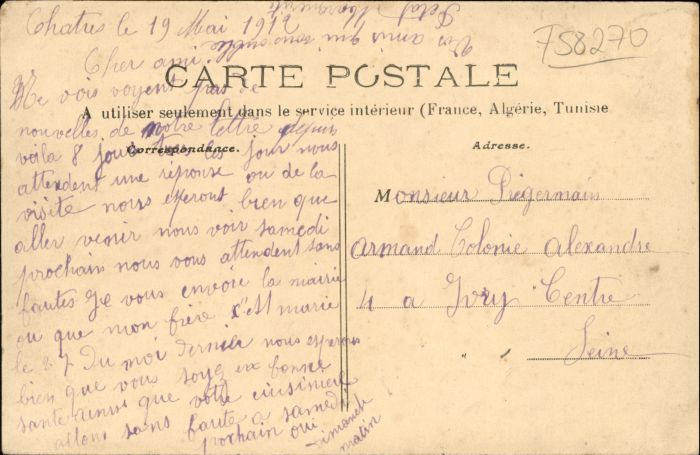 Chatres le 19 Mai 1912
Cher ami
Ne vois voyent pas de
nouvelles de notre lettre depuis
voila 8 jour Tous les jour nous
attendent une réponse ou de la
visite nous esperont bien que
aller venir nous voir samedi
prochain nous vous attendent sans
fautes Je vous envoie la mairie
ou que mon frère c'est marié
le 27 Du moi Dernier nous esperons
bien que vous soyez en bonne
santé ainsi que votre cuisinière
allons sans faute a samedi
prochain oui
dimanch
matin
Vos amis qui
758270
CARTE POSTALE
A utiliser seulement dans le service intérieur (France, Algérie, Tunisie
Correspondance.
Adresse.
Monsieur Piégermain
armand Colonie alexandre
4 a Ivry Centre
Seine